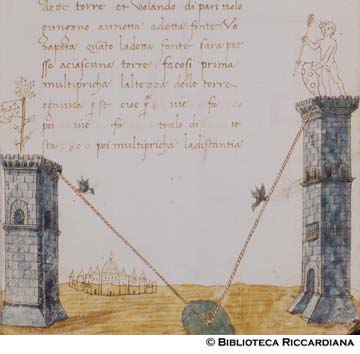 dette torre et volando di pari volo
gungono aunotta adetta fonte Vo
sapere quāto ladetta fonte sara pre
sso aciascuna torre facosi prima
multipricha laltezza delle torre
ognuna p se cioe vie
poi vie fa tralo di re
sta poi multipricha ladistantia
© BIBLIOTECA RICCARDIANA